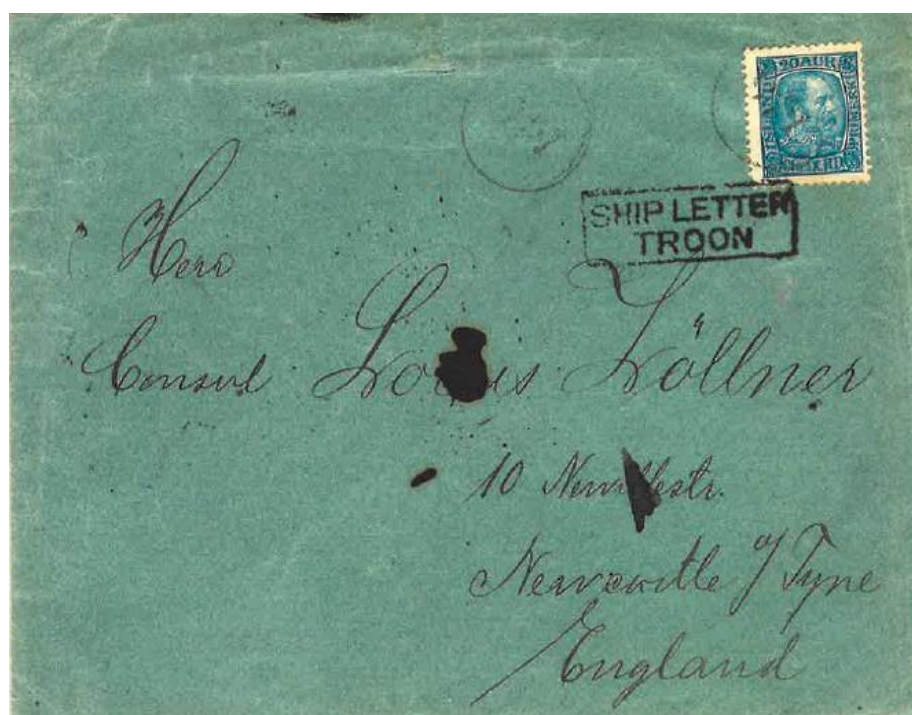 20 AUR
ISLAND
SHIP LETTER
TROON
Herr
Consul Louis Zöllner
10 Nevillestr.
Newcastle o/ Tyne
England